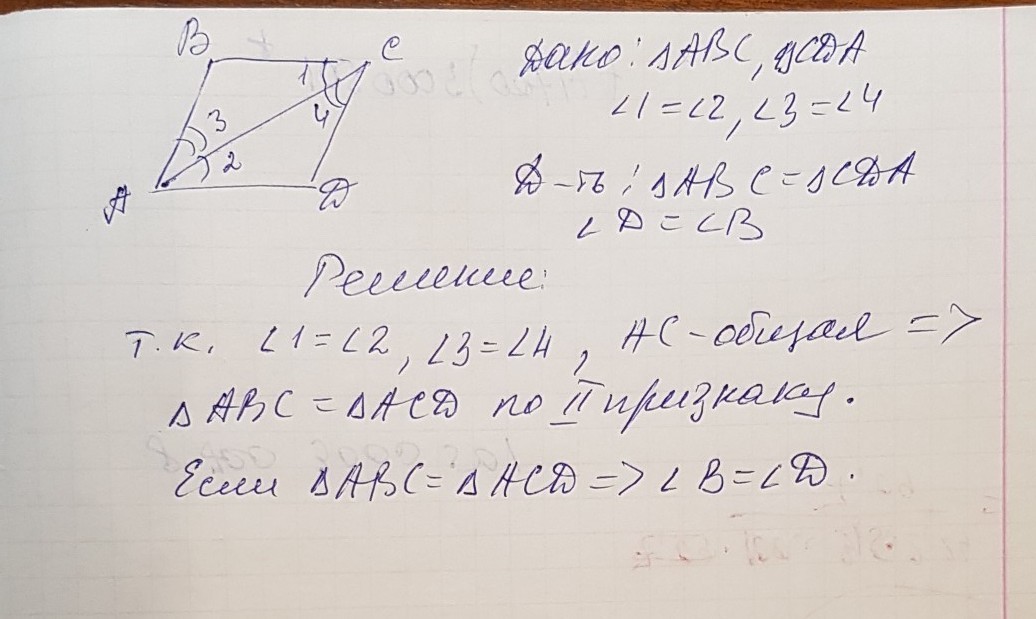 B C
1
4
3
2
A D
Дано: △ABC, △CDA
∠1=∠2, ∠3=∠4
Д-ть: △ABC=△CDA
∠D=∠B
Решение:
т.к. ∠1=∠2, ∠3=∠4, AC-общая =>
△ABC=△ACD по II признаку.
Если △ABC=△ACD=>∠B=∠D.